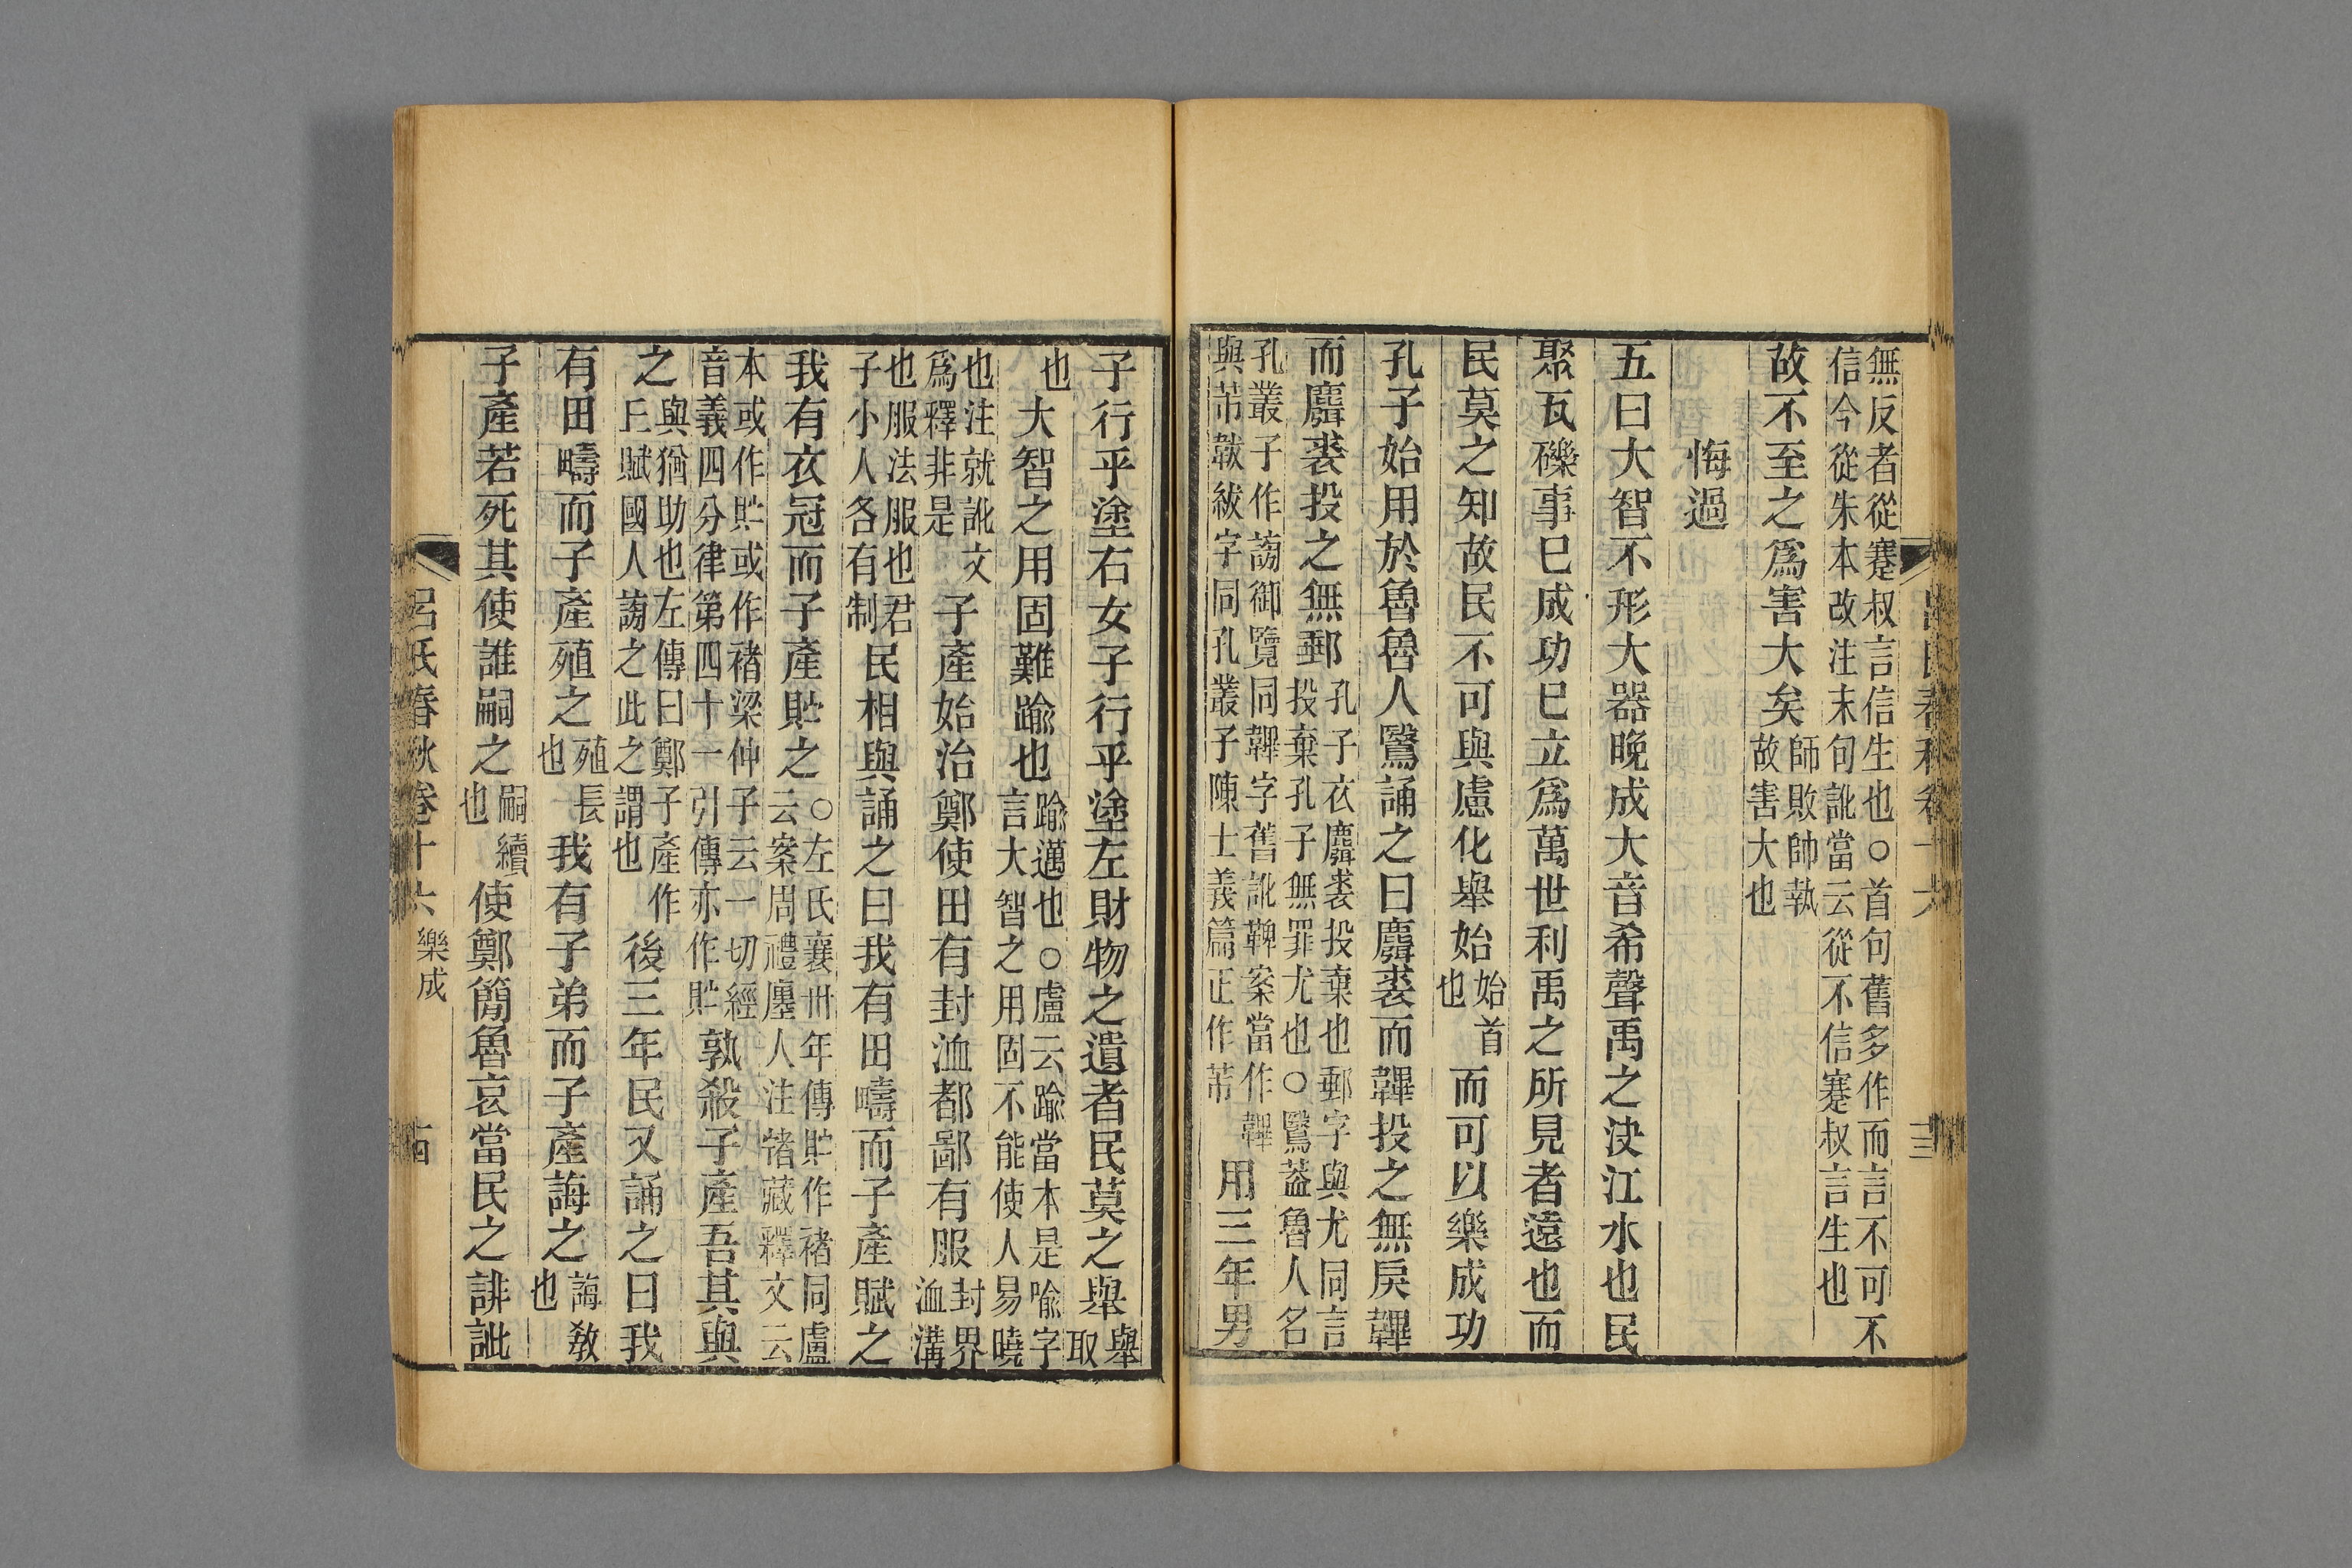 無反者從蹇叔言信生也○首句舊多作而言不可不
信今從朱本改注末句訛當云從不信蹇叔言生也
故不至之爲害大矣師敗帥執故害大也
悔過
五曰大智不形大器晚成大音希聲禹之決江水也民
聚瓦礫事已成功已立爲萬世利禹之所見者遠也而
民莫之知故民不可與慮化舉始始首也而可以樂成功
孔子始用於魯魯人鷖誦之曰麛裘而韠投之無戾韠
而麛裘投之無郵孔子衣麛裘投棄也郵字與尤同言投棄孔子無罪尤也○鷖葢魯人名
孔叢子作謗御覽同韠字舊訛鞞案當作韠與芾韍紱字同孔叢子陳士義篇正作芾用三年男
子行乎塗右女子行乎塗左財物之遺者民莫之舉舉取
也大智之用固難踰也踰邁也○盧云踰當本是喻字言大智之用固不能使人易曉
也注就訛文爲釋非是子產始治鄭使田有封洫都鄙有服封界洫溝
也服法服也君子小人各有制民相與誦之曰我有田疇而子產賦之
我有衣冠而子產貯之○左氏襄卅年傳貯作褚同盧云案周禮廛人注褚藏釋文云
本或作貯或作褚梁仲子云一切經音義四分律第四十一引傳亦作貯孰殺子產吾其與
之與猶助也左傳曰鄭子產作丘賦國人謗之此之謂也後三年民又誦之曰我
有田疇而子產殖之殖長也我有子弟而子產誨之誨教也
子產若死其使誰嗣之嗣續也使鄭簡魯哀當民之誹訿
呂氏春秋卷十六 樂成